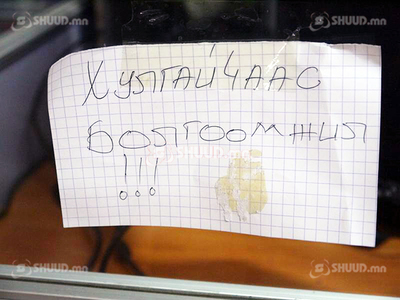 SHUUD.mn SHUUD.mn
ХУЛГАЙЧААС
БОЛГООМЖИЛ
SHUUD.mn
!!!
SHUUD.mn SHUUD.mn